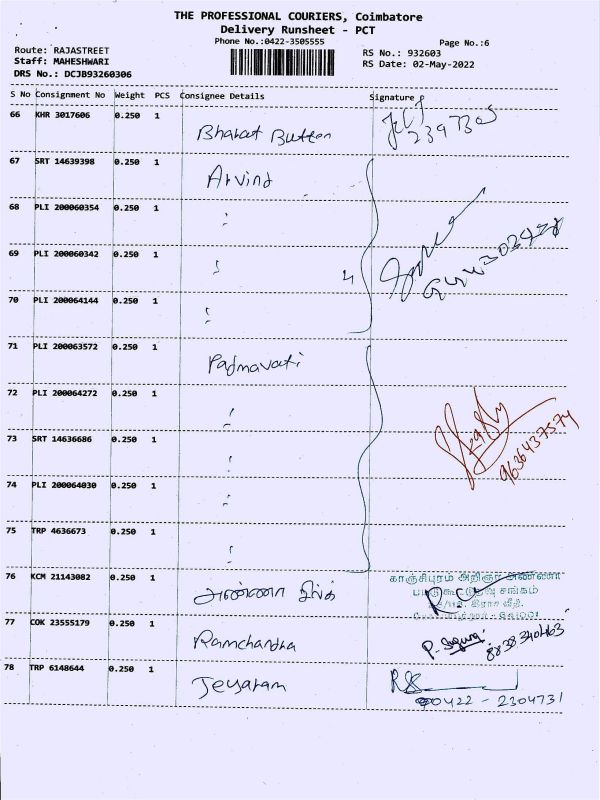 THE PROFESSIONAL COURIERS, Coimbatore
Delivery Runsheet - PCT
Phone No.:0422-3505555
Page No.:6
Route: RAJASTREET
RS No.: 932603
Staff: MAHESHWARI
RS Date: 02-May-2022
DRS No.: DCJB93260306
S No Consignment No Weight PCS Consignee Details Signature
66 KHR 3017606 0.250 1 Bharat Button
67 SRT 14639398 0.250 1 Arvind
68 PLI 200060354 0.250 1 "
69 PLI 200060342 0.250 1 " 4
70 PLI 200064144 0.250 1 "
71 PLI 200063572 0.250 1 Padmavati
72 PLI 200064272 0.250 1 "
73 SRT 14636686 0.250 1 " 9636437574
74 PLI 200064030 0.250 1 "
75 TRP 4636673 0.250 1 "
76 KCM 21143082 0.250 1 அண்ணா காஞ்சிபுரம் அறிஞர் அண்ணா
77 COK 23555179 0.250 1 Ramchandra
78 TRP 6148644 0.250 1 Jeyaram
0422 - 2304731